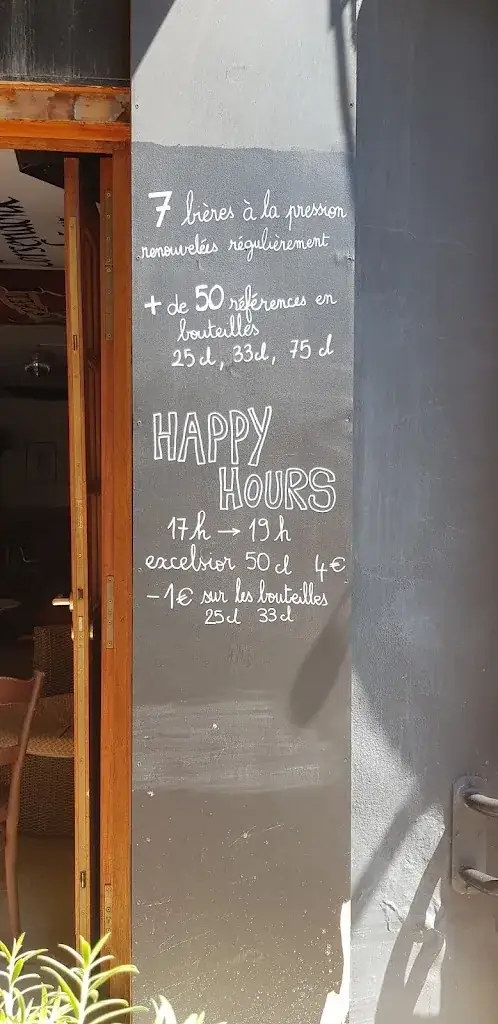 7 bières à la pression
renouvelées régulièrement
+ de 50 références en
bouteilles
25 cl, 33cl, 75 cl
HAPPY
HOURS
17h → 19h
excelsior 50 cl 4€
-1€ sur les bouteilles
25 cl 33 cl